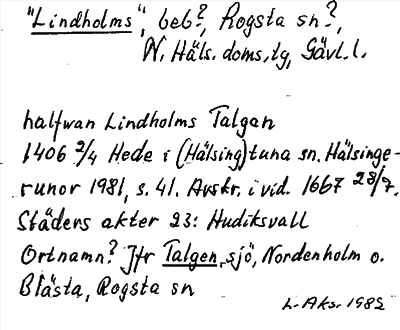 "Lindholms", beb?, Rogsta sn?,
N. Häls. doms.lg, Gävl. l.
halfwan Lindholms Talgan
1406 2/4 Hede i (Hälsing)tuna sn. Hälsinge-
runor 1981, s. 41. Avskr. i vid. 1667 28/7.
Städers akter 23: Hudiksvall
Ortnamn? Jfr Talgen, sjö, Nordenholm o.
Blästa, Rogsta sn
L. Aks. 1982